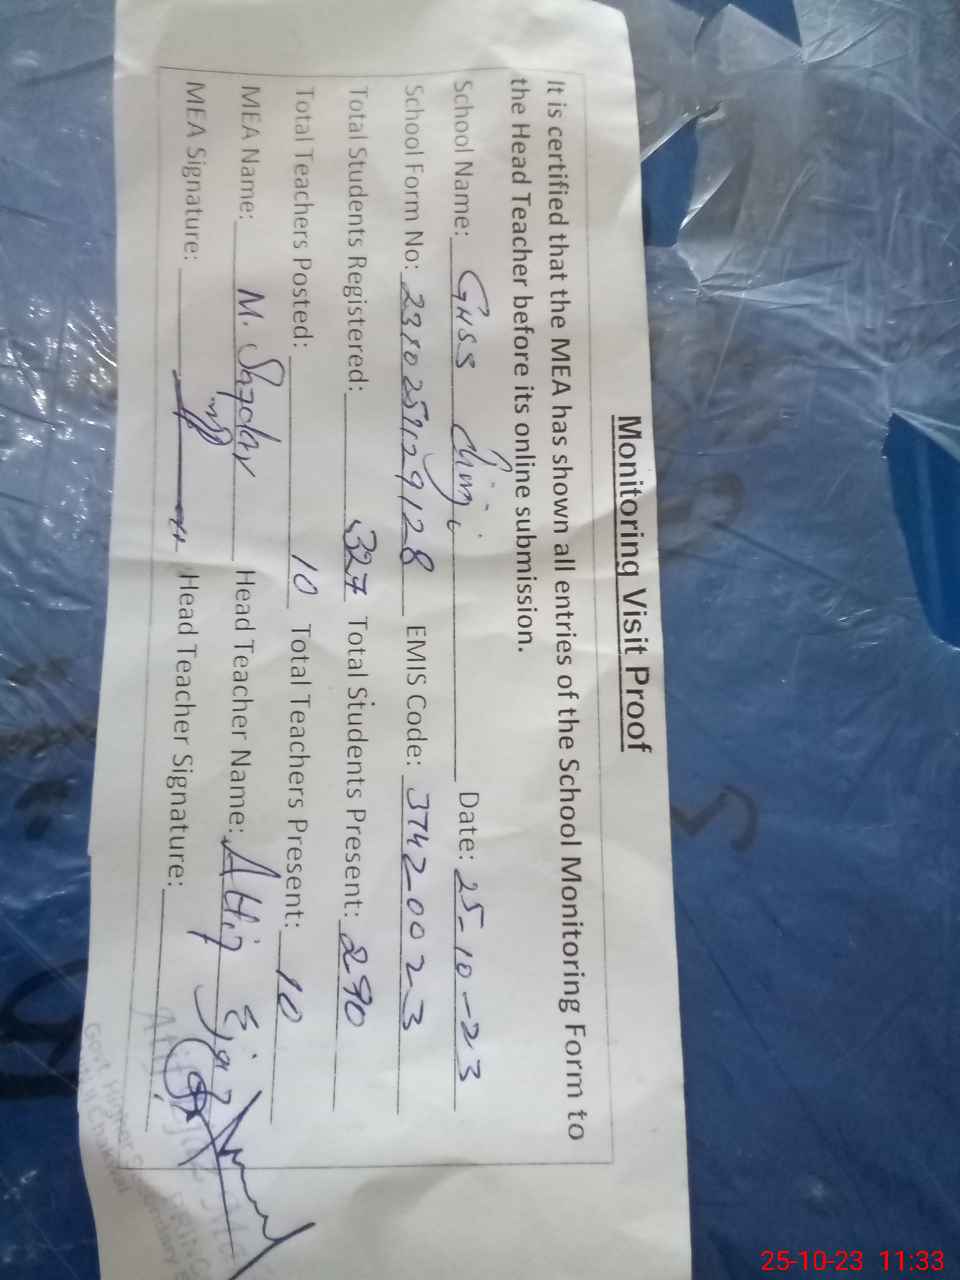 Monitoring Visit Proof
It is certified that the MEA has shown all entries of the School Monitoring Form to
the Head Teacher before its online submission.
School Name: GHSS Date: 25-10-23
School Form No: EMIS Code: 37420023
Total Students Registered: 327 Total Students Present: 290
Total Teachers Posted: 10 Total Teachers Present: 10
MEA Name: M. Head Teacher Name:
MEA Signature: Head Teacher Signature:
25-10-23 11:33